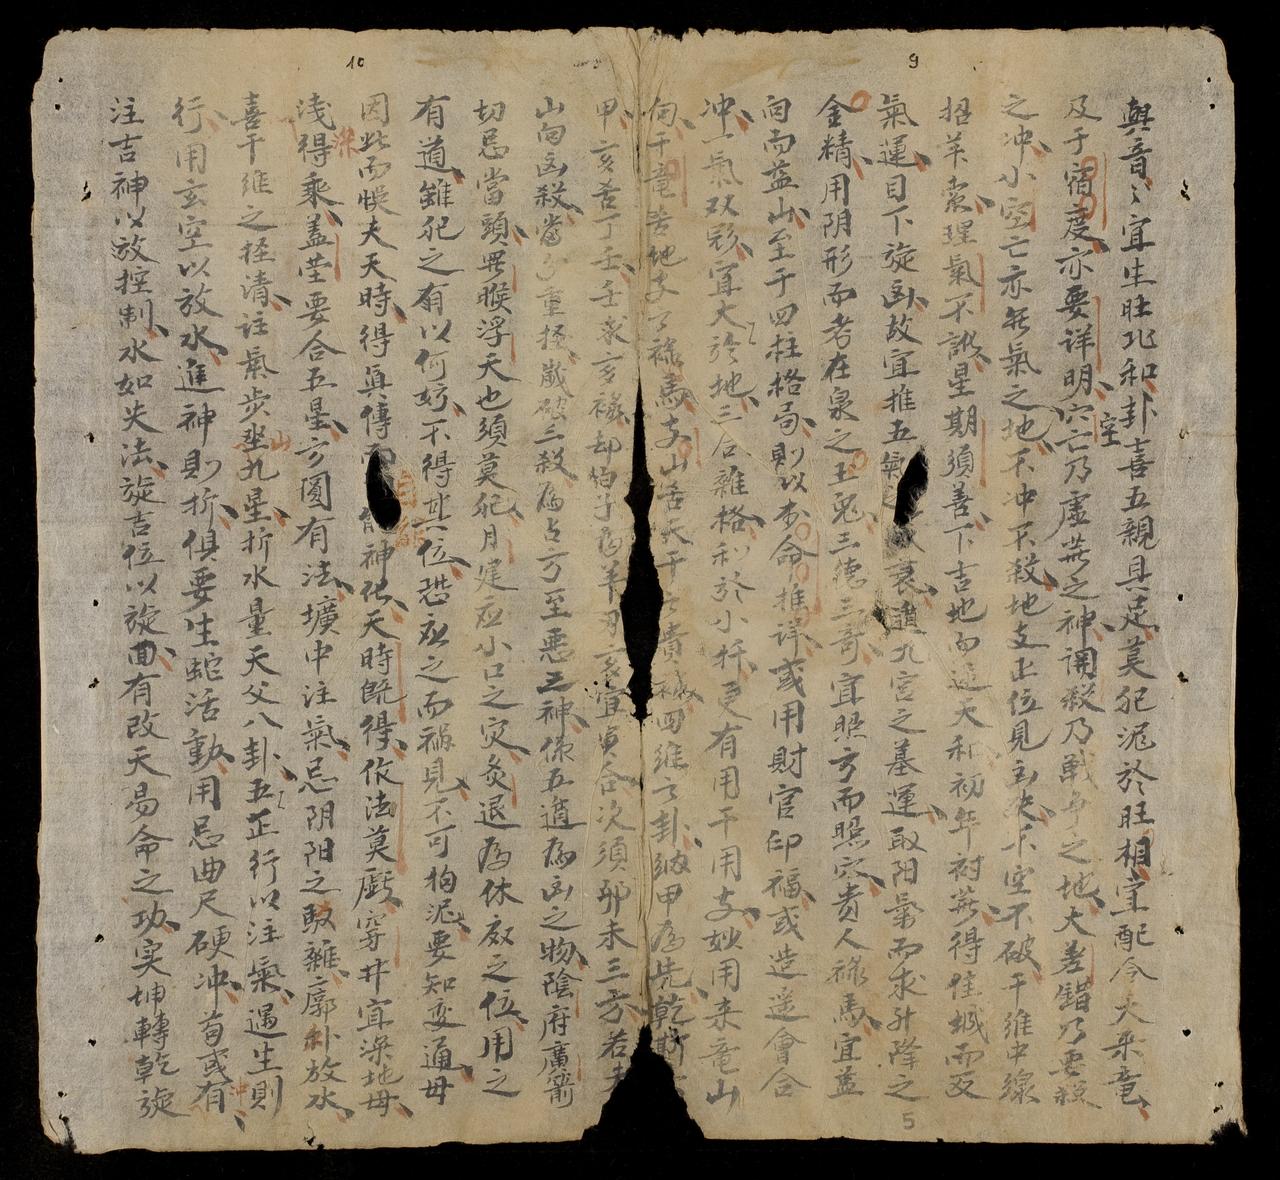 10
9
與音〻宜生旺比和卦喜五親具足莫犯泥於旺相宜配今大來竜
及于宿度亦要詳明空亡乃虛無之神調殺乃戰爭之地大差錯乃要殺
之冲小空亡亦無氣之地不冲不殺地支正位見不空不破干維中線
招羊索理氣不訛星期須善下吉地向造大和初年衬無得佳城而反
氣運目下旋凶故宜推五氣之衰進九宮之基運取阳氣而求升降之
金精用阴形而考在泉之五鬼三德三奇宜照方而照穴貴人祿馬宜益
向而益山至于四柱格局則以本命推详或用財官印福或造逆會合
冲一氣双彩宜大於地三合雜格利於小扦更有用干用支妙用来竜山
向干竜吉地支祿馬支山吉天干貴四維之卦納甲為先乾
甲亥吉丁壬壬求亥祿却怕子為羊刃宜寅合次須卯未三方若
山向凶殺當重擇歲破三殺為占方至惡之神係五道為凶之物陰府廣箭
切忌當頭畏睺浮天也須莫犯月建应小口之灾灸退為休敗之位用之
有道雖犯之有以何妨不得其位恐应之而禍見不可拘泥要知变通毋
因此而悞夫天時得真傳而能神化天時既得依法莫戲穿井宜深地毋
浅得乘盖茔要合五星方圓有法壙中注氣忌阴阳之駁雜廓外放水
喜干維之择清注氣步坐山九星折水量天父八卦五正行以注氣遇生則
行用玄空以放水進神則折俱要生蛇活動用忌曲尺硬冲苟或有
注吉神以放控制水如失法旋吉位以旋面有改天易命之功实坤轉乾旋
深
自
能
冲
5